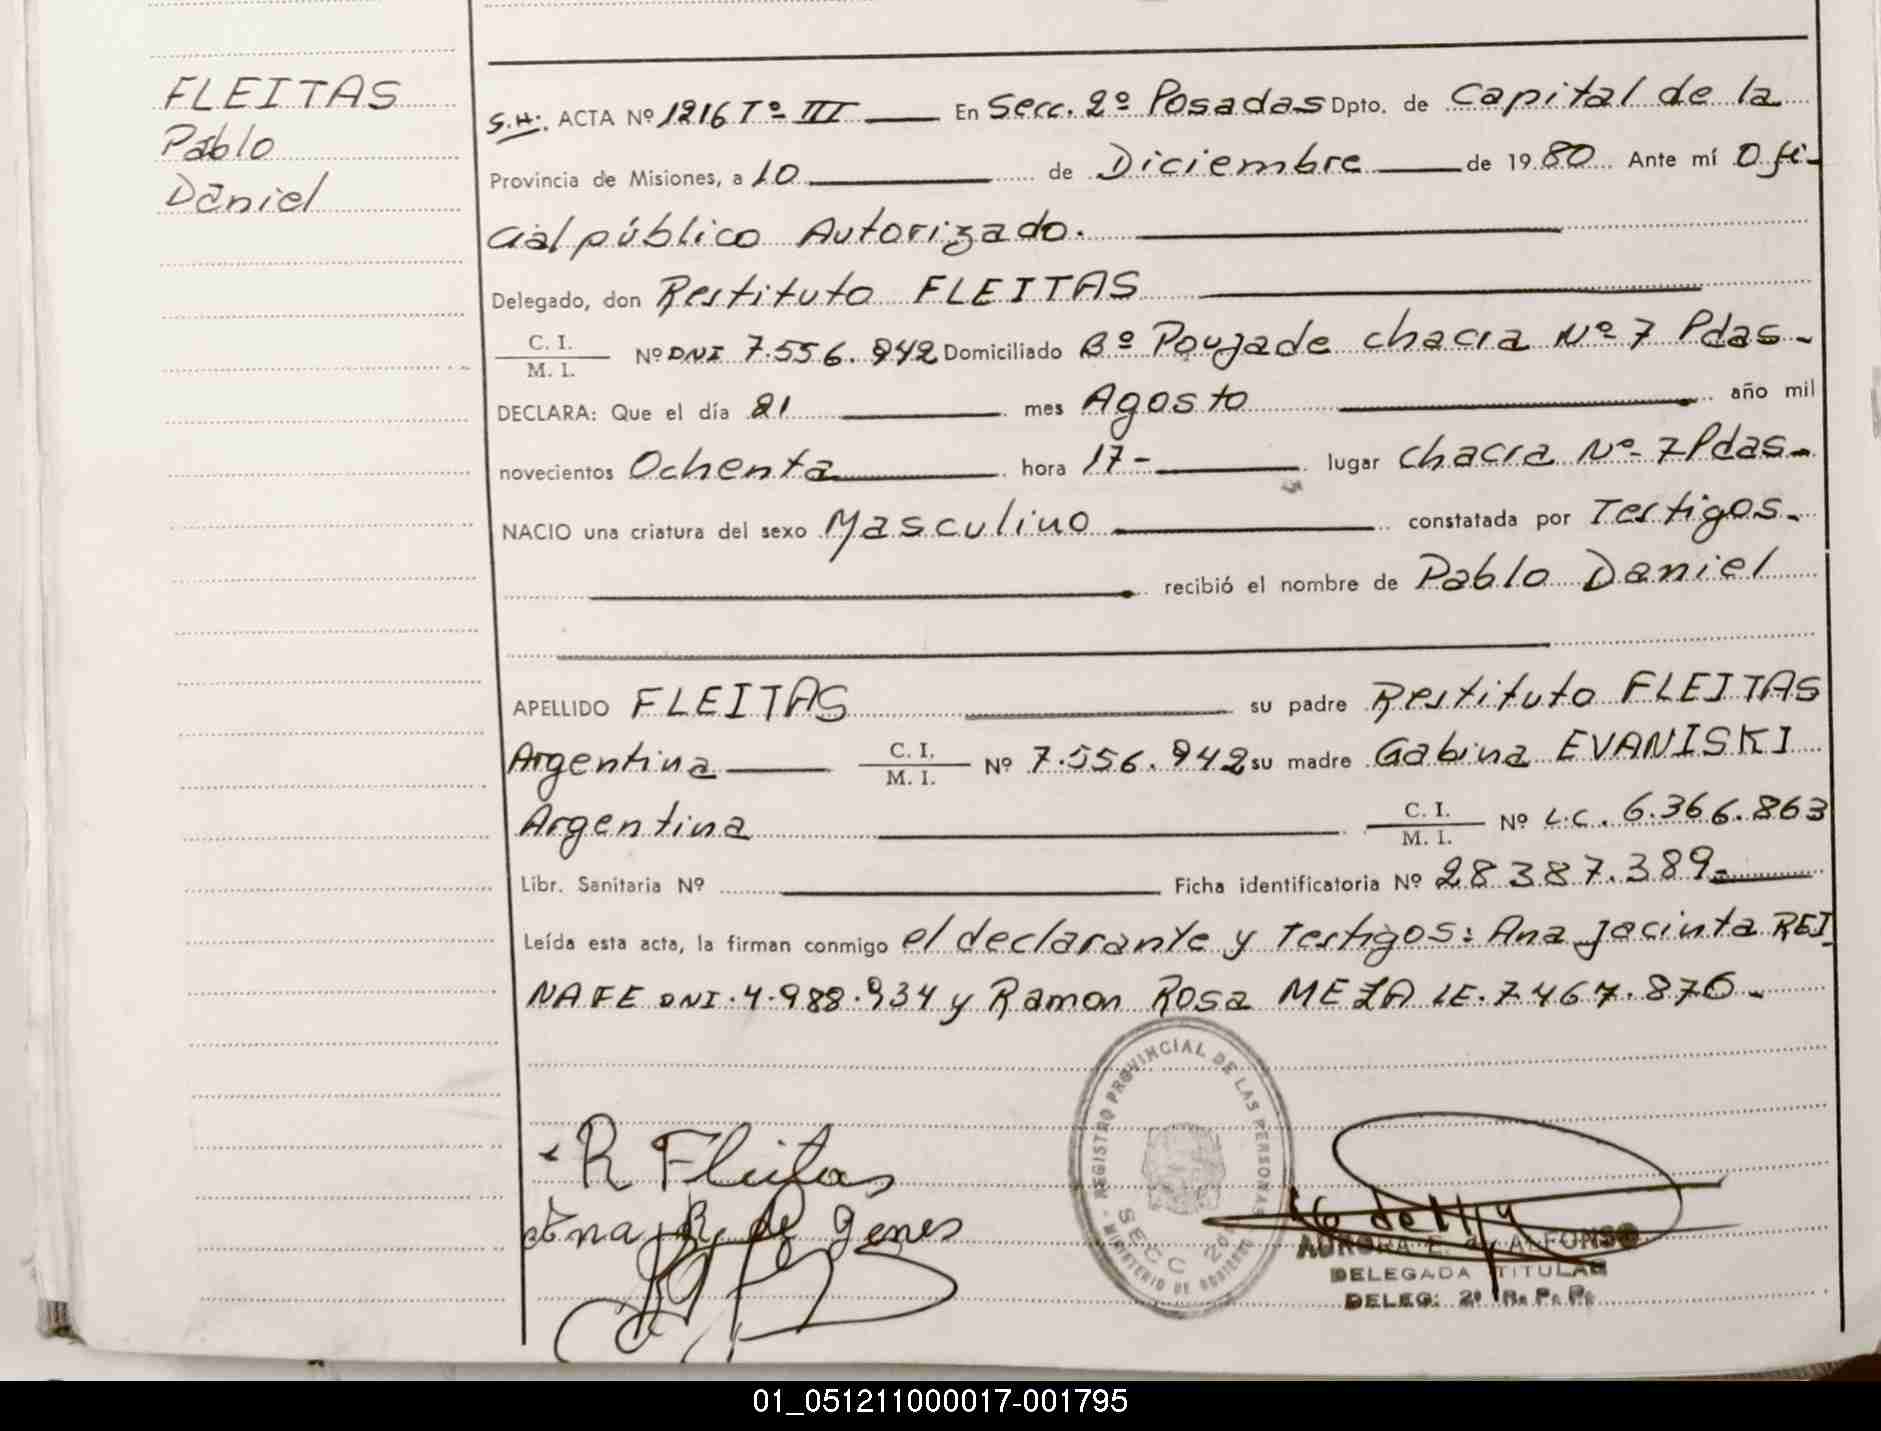 FLEITAS
Pablo
Daniel
S.H. ACTA Nº 1216 Tº III En Secc. 2º Posadas Dpto. de Capital de la
Provincia de Misiones, a 10 de Diciembre de 1980 Ante mí Ofi-
cial público Autorizado.
Delegado, don Restituto FLEITAS
C. I.
M. I. Nº DNI 7.556.942 Domiciliado Bº Poujade chacra Nº 7 Pdas.-
DECLARA: Que el día 21 mes Agosto año mil
novecientos Ochenta hora 17- lugar chacra Nº 7 Pdas.-
NACIO una criatura del sexo Masculino constatada por Testigos.-
recibió el nombre de Pablo Daniel
APELLIDO FLEITAS su padre Restituto FLEITAS
Argentina C. I. M. I. Nº 7.556.942 su madre Gabina EVANISKI
Argentina C. I. M. I. Nº L.C. 6.366.863
Libr. Sanitaria Nº Ficha identificatoria Nº 28387.389-
Leída esta acta, la firman conmigo el declarante y Testigos: Ana Jacinta REI
NAFE DNI. 4.988.934 y Ramon Rosa MEZA LE. 7.467.876.-
R Fleitas
Ana R. de Genes
REGISTRO PROVINCIAL DE LAS PERSONAS
SECC 2º
MINISTERIO DE GOBIERNO
AURORA E. ALFONSO
DELEGADA TITULAR
DELEG: 2º R. P. P.
01_051211000017-001795